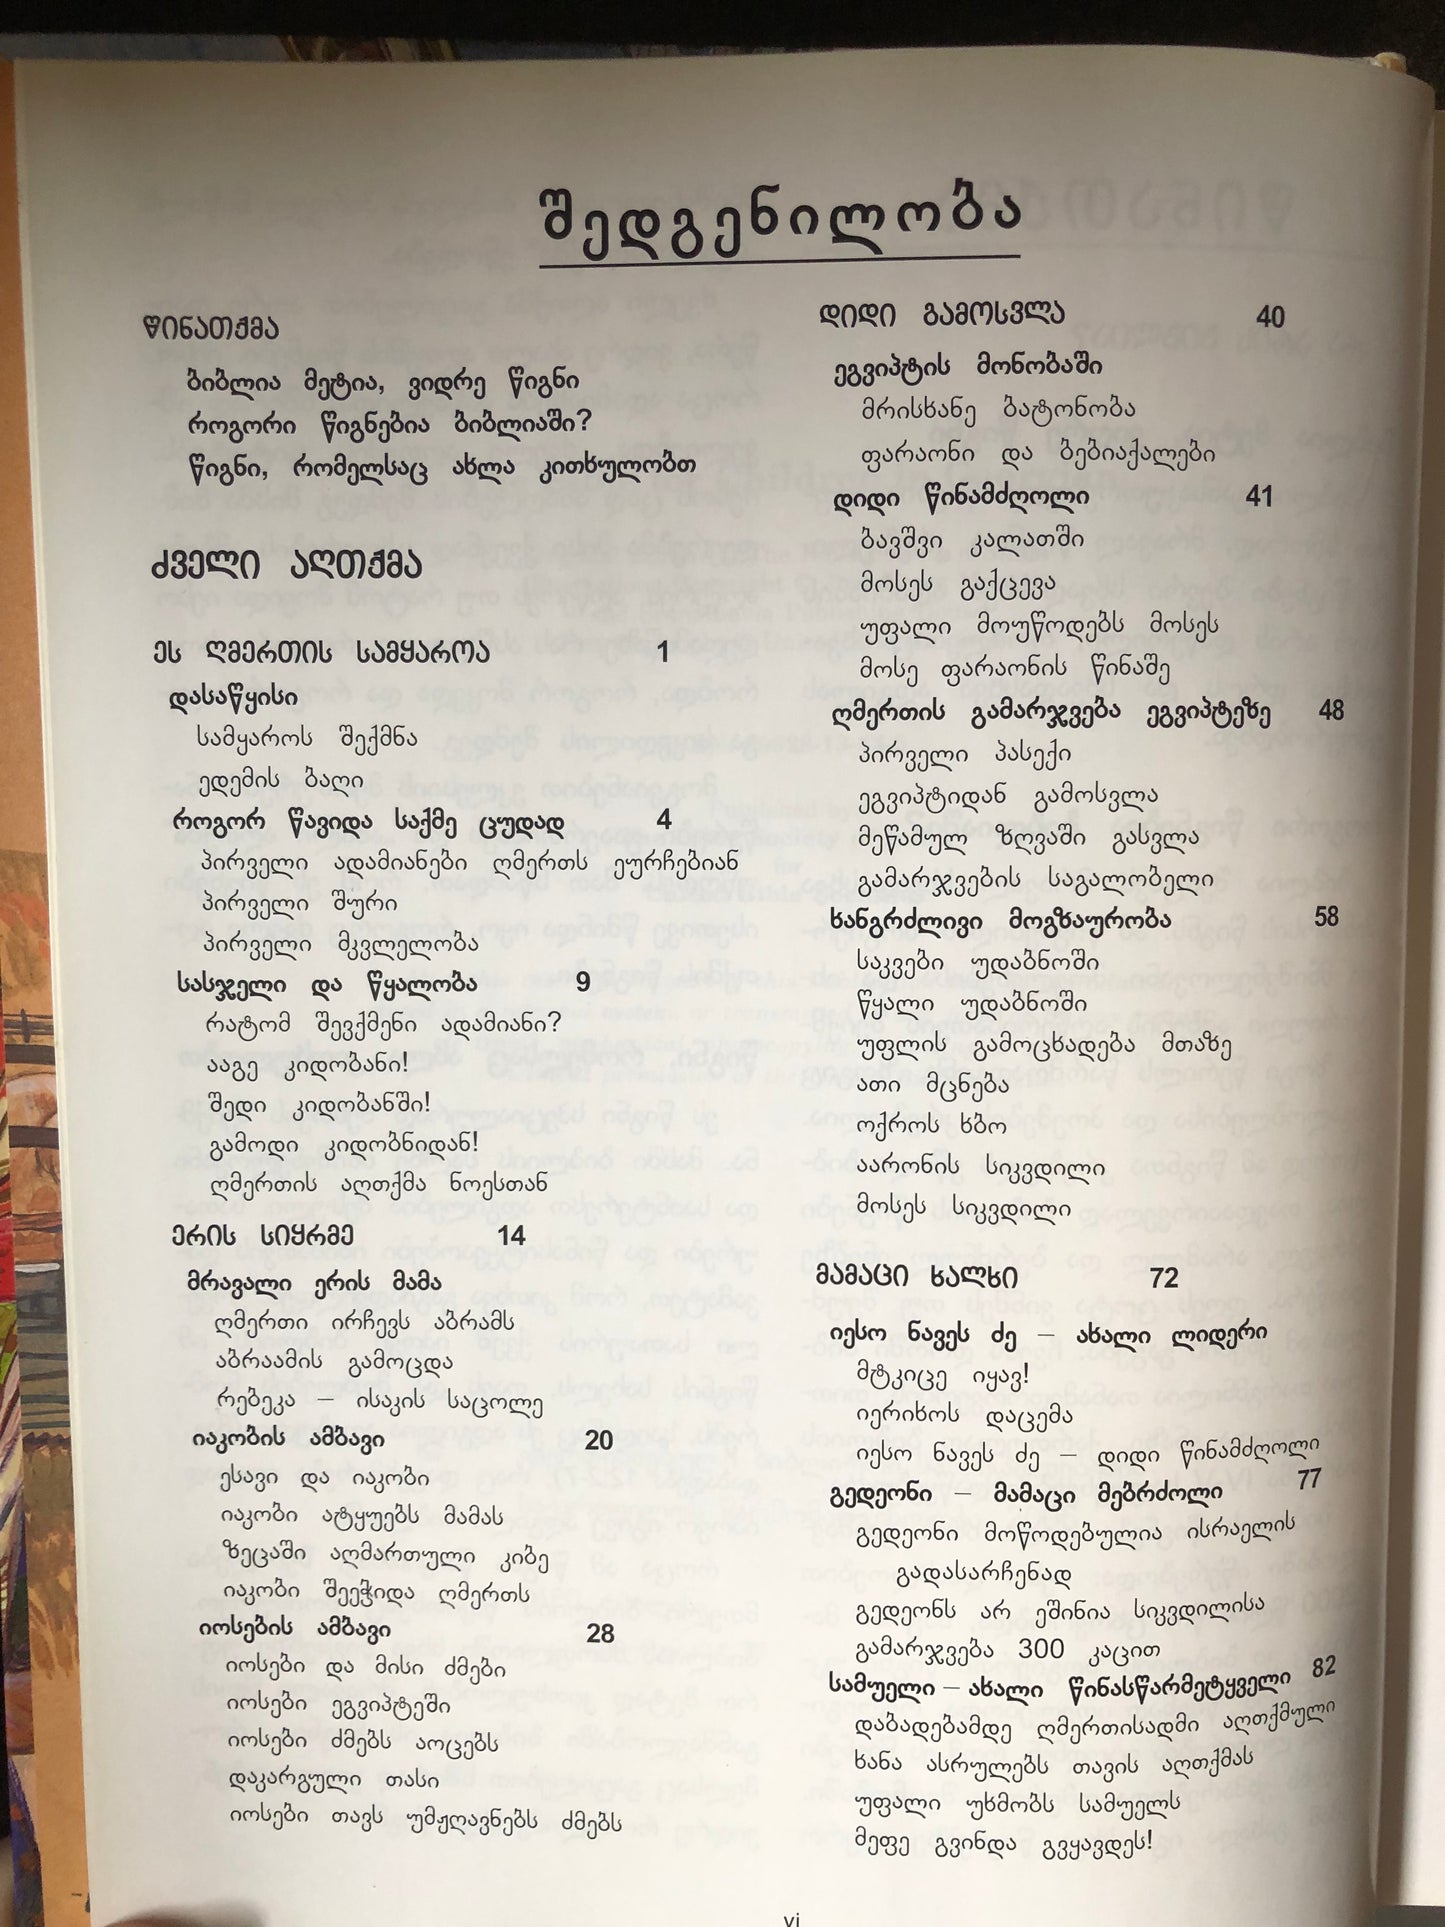 შედგენილობა
წინათქმა
ბიბლია მეტია, ვიდრე წიგნი
როგორი წიგნებია ბიბლიაში?
წიგნი, რომელსაც ახლა კითხულობთ
ძველი აღთქმა
ეს ღმერთის სამყაროა 1
დასაწყისი
სამყაროს შექმნა
ედემის ბაღი
როგორ წავიდა საქმე ცუდად 4
პირველი ადამიანები ღმერთს ეურჩებიან
პირველი შური
პირველი მკვლელობა
სასჯელი და წყალობა 9
რატომ შევქმენი ადამიანი?
ააგე კიდობანი!
შედი კიდობანში!
გამოდი კიდობნიდან!
ღმერთის აღთქმა ნოესთან
ერის სიყრმე 14
მრავალი ერის მამა
ღმერთი ირჩევს აბრამს
აბრაამის გამოცდა
რებეკა – ისაკის საცოლე
იაკობის ამბავი 20
ესავი და იაკობი
იაკობი ატყუებს მამას
ზეცაში აღმართული კიბე
იაკობი შეეჭიდა ღმერთს
იოსების ამბავი 28
იოსები და მისი ძმები
იოსები ეგვიპტეში
იოსები ძმებს აოცებს
დაკარგული თასი
იოსები თავს უმჟღავნებს ძმებს
დიდი გამოსვლა 40
ეგვიპტის მონობაში
მრისხანე ბატონობა
ფარაონი და ბებიაქალები
დიდი წინამძღოლი 41
ბავშვი კალათში
მოსეს გაქცევა
უფალი მოუწოდებს მოსეს
მოსე ფარაონის წინაშე
ღმერთის გამარჯვება ეგვიპტეზე 48
პირველი პასექი
ეგვიპტიდან გამოსვლა
მეწამულ ზღვაში გასვლა
გამარჯვების საგალობელი
ხანგრძლივი მოგზაურობა 58
საკვები უდაბნოში
წყალი უდაბნოში
უფლის გამოცხადება მთაზე
ათი მცნება
ოქროს ხბო
აარონის სიკვდილი
მოსეს სიკვდილი
მამაცი ხალხი 72
იესო ნავეს ძე – ახალი ლიდერი
მტკიცე იყავ!
იერიხოს დაცემა
იესო ნავეს ძე – დიდი წინამძღოლი
გედეონი – მამაცი მებრძოლი 77
გედეონი მოწოდებულია ისრაელის
გადასარჩენად
გედეონს არ ეშინია სიკვდილისა
გამარჯვება 300 კაცით
სამუელი – ახალი წინასწარმეტყველი 82
დაბადებამდე ღმერთისადმი აღთქმული
ხანა ასრულებს თავის აღთქმას
უფალი უხმობს სამუელს
მეფე გვინდა გვყავდეს!
vi